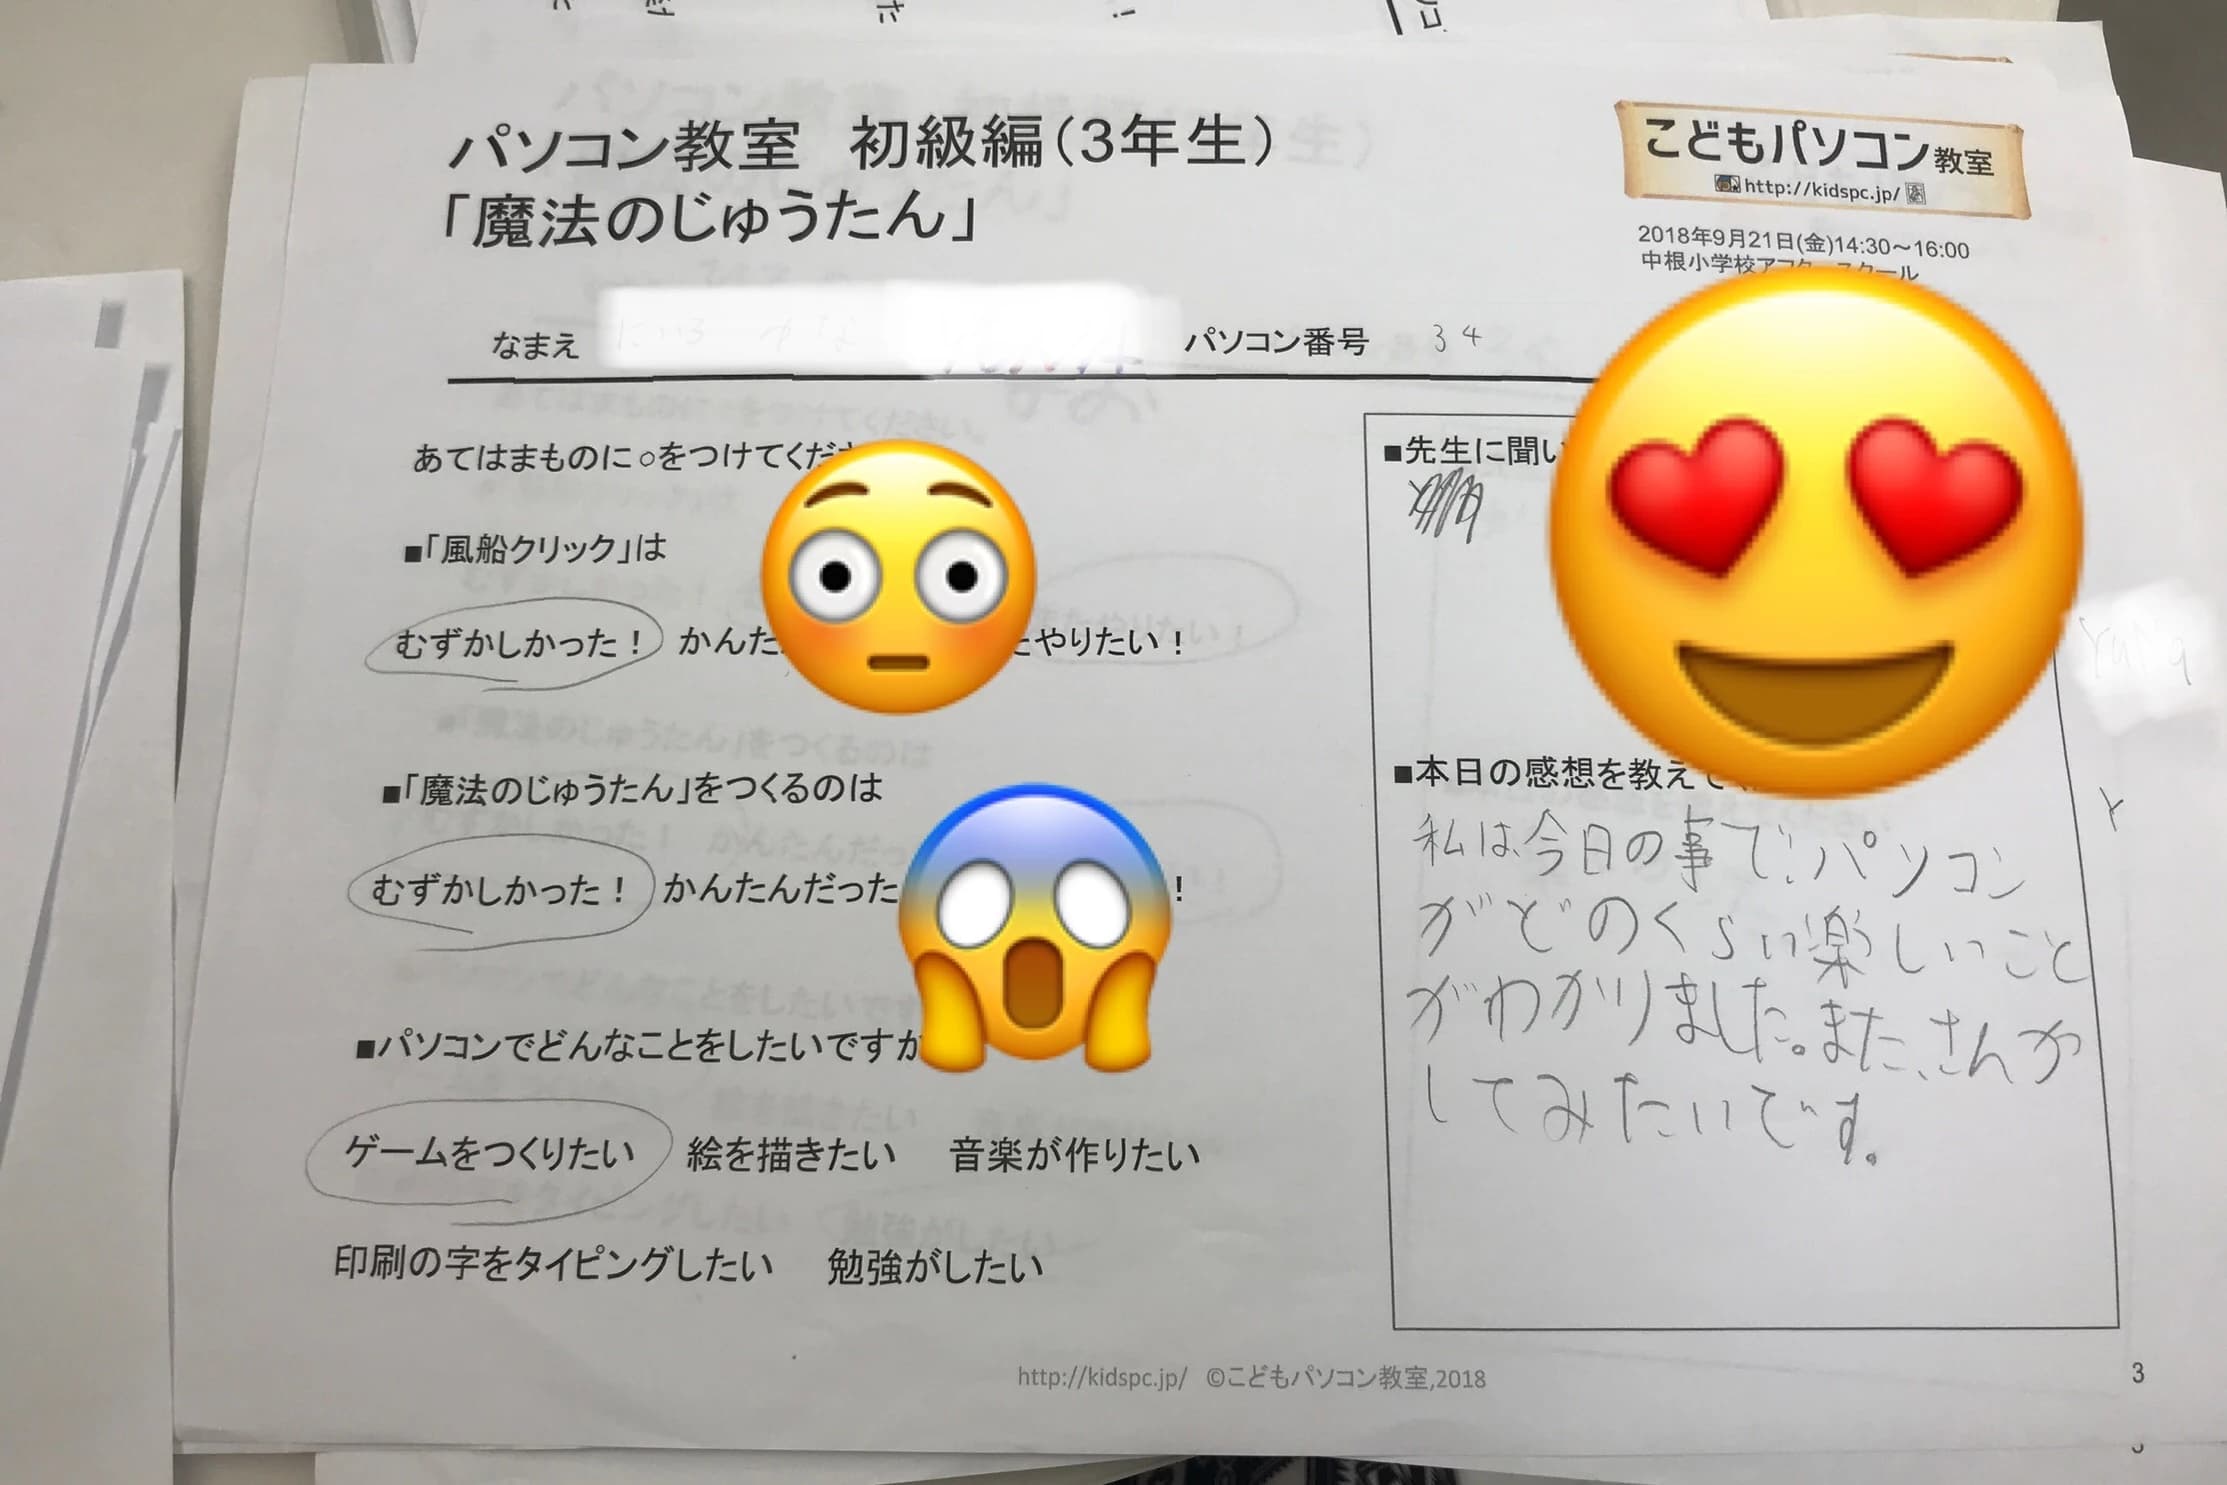 パソコン教室 初級編(3年生)
「魔法のじゅうたん」
こどもパソコン教室
http://kidspc.jp/
2018年9月21日(金)14:30～16:00
中根小学校アフタースクール
なまえ
パソコン番号 34
あてはまものに○をつけてくださ
■「風船クリック」は
むずかしかった! かんた やりたい!
■「魔法のじゅうたん」をつくるのは
むずかしかった! かんたんだった !
■パソコンでどんなことをしたいですか
ゲームをつくりたい 絵を描きたい 音楽が作りたい
印刷の字をタイピングしたい 勉強がしたい
■先生に聞い
■本日の感想を教えて
私は今日の事で、パソコン
がどのくらい楽しいこと
がわかりました。また、さんか
してみたいです。
http://kidspc.jp/ ©こどもパソコン教室,2018
3